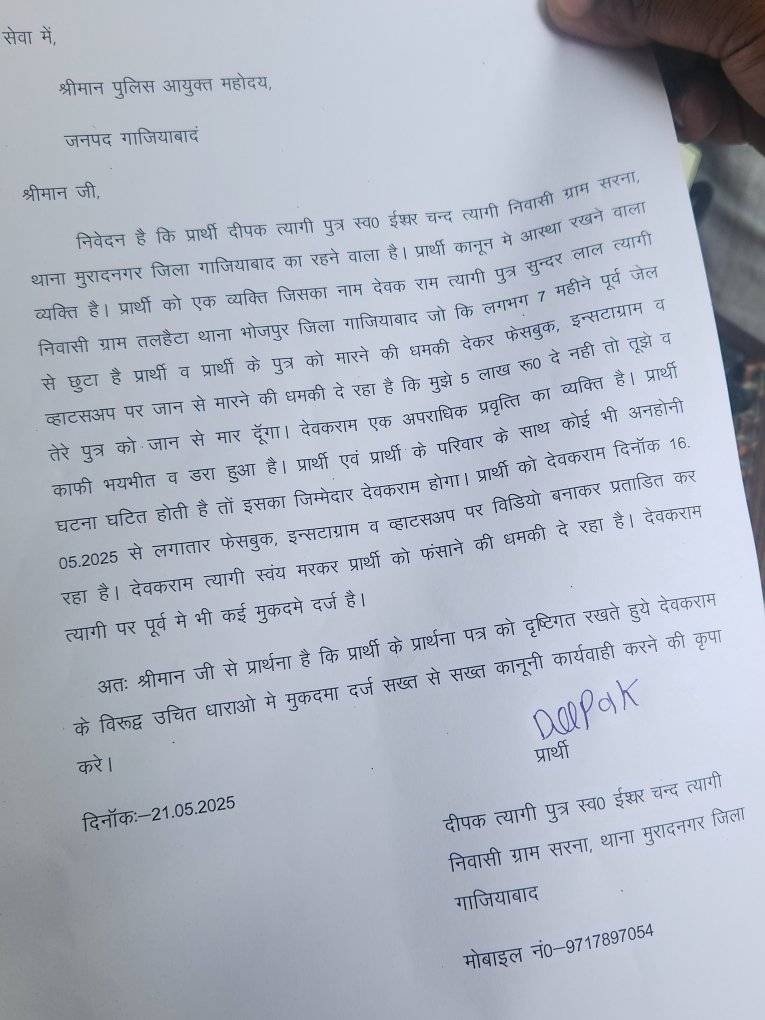 सेवा में,
श्रीमान पुलिस आयुक्त महोदय,
जनपद गाजियाबादं
श्रीमान जी,
निवेदन है कि प्रार्थी दीपक त्यागी पुत्र स्व0 ईश्वर चन्द त्यागी निवासी ग्राम सरना,
थाना मुरादनगर जिला गाजियाबाद का रहने वाला है। प्रार्थी कानून मे आस्था रखने वाला
व्यक्ति है। प्रार्थी को एक व्यक्ति जिसका नाम देवक राम त्यागी पुत्र सुन्दर लाल त्यागी
निवासी ग्राम तलहैटा थाना भोजपुर जिला गाजियाबाद जो कि लगभग 7 महीने पूर्व जेल
से छुटा है प्रार्थी व प्रार्थी के पुत्र को मारने की धमकी देकर फेसबुक, इन्सटाग्राम व
व्हाटसअप पर जान से मारने की धमकी दे रहा है कि मुझे 5 लाख रू0 दे नही तो तूझे व
तेरे पुत्र को जान से मार दूॅगा। देवकराम एक अपराधिक प्रवृत्ति का व्यक्ति है। प्रार्थी
काफी भयभीत व डरा हुआ है। प्रार्थी एवं प्रार्थी के परिवार के साथ कोई भी अनहोनी
घटना घटित होती है तों इसका जिम्मेदार देवकराम होगा। प्रार्थी को देवकराम दिनॉक 16.
05.2025 से लगातार फेसबुक, इन्सटाग्राम व व्हाटसअप पर विडियो बनाकर प्रताडित कर
रहा है। देवकराम त्यागी स्वंय मरकर प्रार्थी को फंसाने की धमकी दे रहा है। देवकराम
त्यागी पर पूर्व मे भी कई मुकदमे दर्ज है।
अतः श्रीमान जी से प्रार्थना है कि प्रार्थी के प्रार्थना पत्र को दृष्टिगत रखते हुये देवकराम
के विरूद्व उचित धाराओ मे मुकदमा दर्ज सख्त से सख्त कानूनी कार्यवाही करने की कृपा
करे।
Deepak
प्रार्थी
दिनॉकः–21.05.2025
दीपक त्यागी पुत्र स्व0 ईश्वर चन्द त्यागी
निवासी ग्राम सरना, थाना मुरादनगर जिला
गाजियाबाद
मोबाइल नं0–9717897054